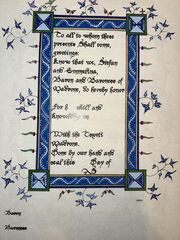 To all to whom these
presents Shall come,
greetings:
Know that we, Stefan
and
Baron and Baroness of
Madrone, do hereby honor
For h skill and
in
With the
Madrone.
Done by our hand and
seal this Day of
Baron
Baroness